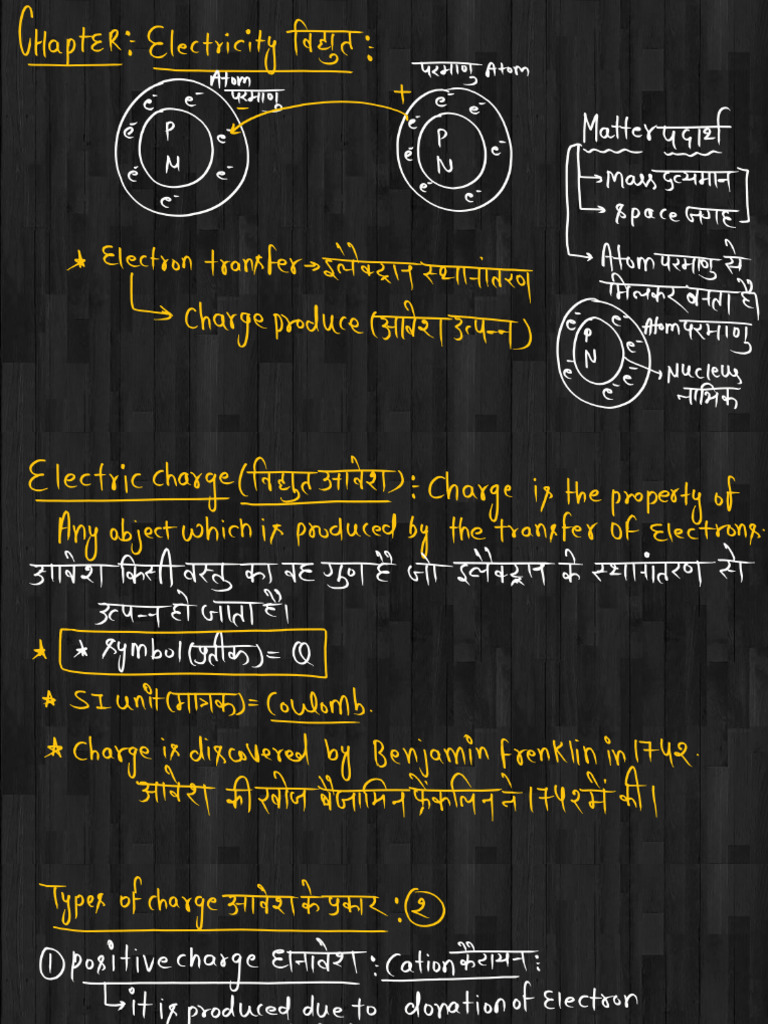 Chapter: Electricity विद्युत:
Atom
परमाणु
परमाणु Atom
e⁻ e⁻ e⁻ e⁻ e⁻ e⁻ e⁻
P
N
+
e⁻ e⁻ e⁻ e⁻ e⁻ e⁻ e⁻
P
N
Matter पदार्थ
→ Mass द्रव्यमान
→ Space जगह
→ Atom परमाणु से
मिलकर बनता है।
Atom परमाणु
e⁻ e⁻ e⁻ e⁻ e⁻ e⁻
P
N
→ Nucleus
नाभिक
* Electron transfer → इलैक्ट्रान स्थानांतरण
→ Charge produce (आवेश उत्पन्न)
Electric charge (विद्युत आवेश): Charge is the property of
Any object which is produced by the transfer of Electrons.
आवेश किसी वस्तु का वह गुण है जो इलैक्ट्रान के स्थानांतरण से
उत्पन्न हो जाता है।
* * Symbol (प्रतीक) = Q
* SI unit (मात्रक) = Coulomb.
* Charge is discovered by Benjamin Frenklin in 1742.
आवेश की खोज बैंजामिन फ्रेंकलिन ने 1742 में की।
Types of charge आवेश के प्रकार : 2
① Positive charge धनावेश : Cation कैटायन :
→ it is produced due to donation of Electron